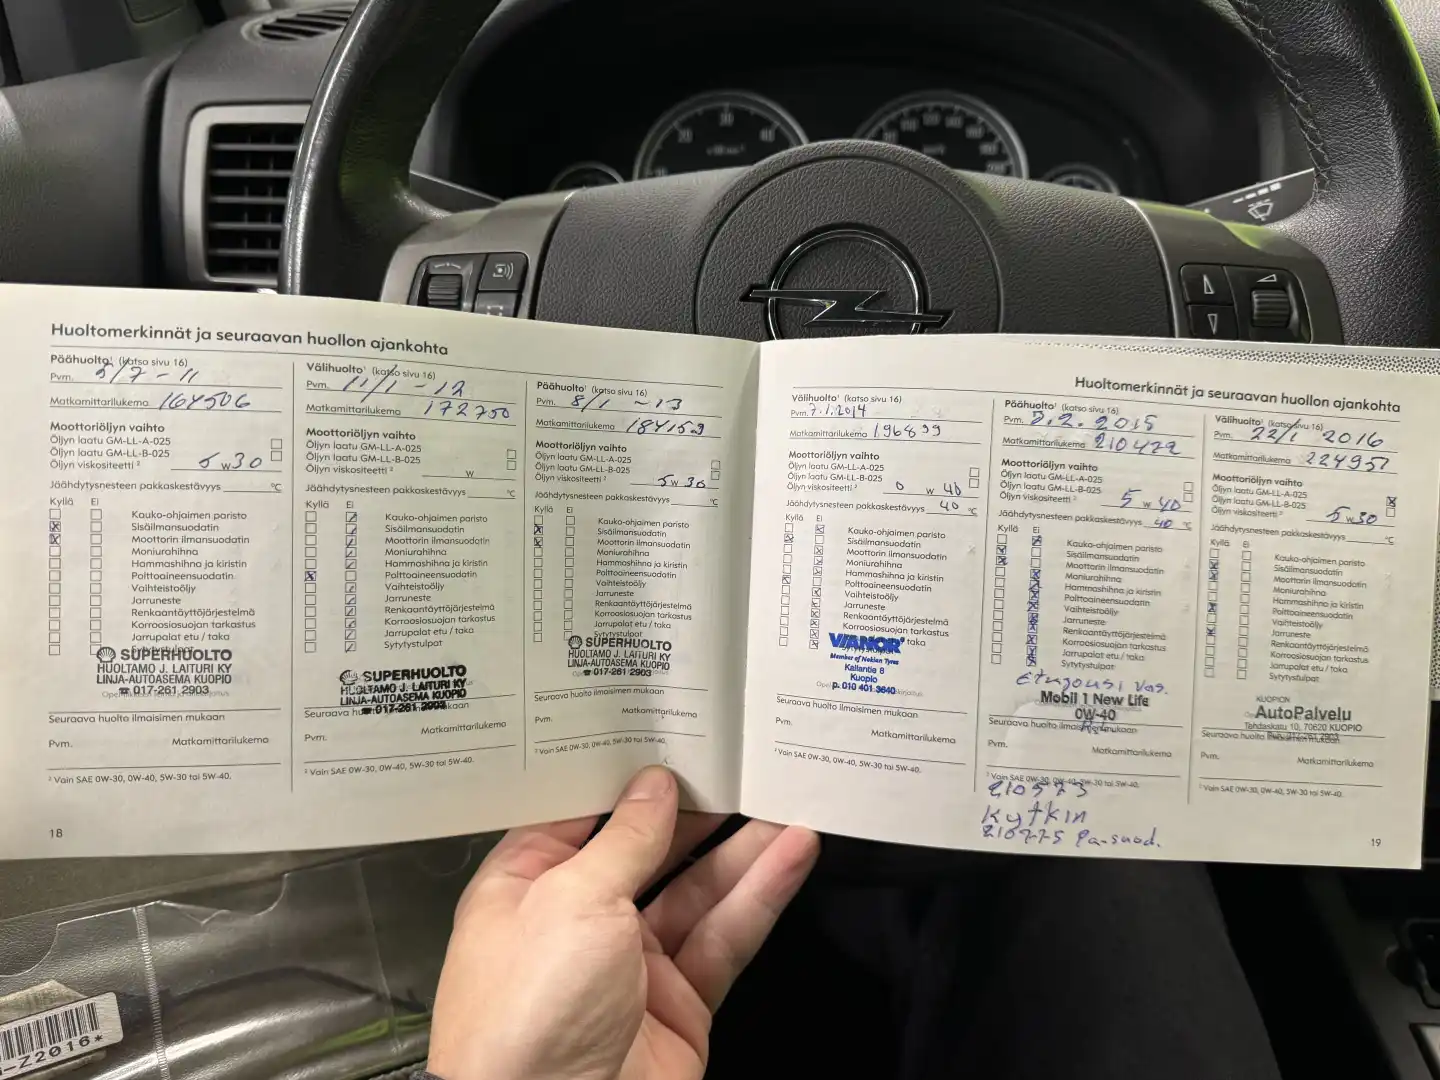 Huoltomerkinnät ja seuraavan huollon ajankohta
Päähuolto¹ (katso sivu 16)
Pvm. 5/7 - 11
Matkamittarilukema 164506
Moottoriöljyn vaihto
Öljyn laatu GM-LL-A-025
Öljyn laatu GM-LL-B-025
Öljyn viskositeetti ² 5 w 30
Jäähdytysnesteen pakkaskestävyys °C
Kyllä Ei
Kauko-ohjaimen paristo
Sisäilmansuodatin
Moottorin ilmansuodatin
Moniurahihna
Hammashihna ja kiristin
Polttoaineensuodatin
Vaihteistoöljy
Jarruneste
Renkaantäyttöjärjestelmä
Korroosiosuojan tarkastus
Jarrupalat etu / taka
Sytytystulpat
SUPERHUOLTO
HUOLTAMO J. LAITURI KY
LINJA-AUTOASEMA KUOPIO
☎ 017-261 2903
Seuraava huolto ilmaisimen mukaan
Pvm. Matkamittarilukema
² Vain SAE 0W-30, 0W-40, 5W-30 tai 5W-40.
18
Välihuolto¹ (katso sivu 16)
Pvm. 11/1 - 12
Matkamittarilukema 172750
Moottoriöljyn vaihto
Öljyn laatu GM-LL-A-025
Öljyn laatu GM-LL-B-025
Öljyn viskositeetti ² w
Jäähdytysnesteen pakkaskestävyys °C
Kyllä Ei
Kauko-ohjaimen paristo
Sisäilmansuodatin
Moottorin ilmansuodatin
Moniurahihna
Hammashihna ja kiristin
Polttoaineensuodatin
Vaihteistoöljy
Jarruneste
Renkaantäyttöjärjestelmä
Korroosiosuojan tarkastus
Jarrupalat etu / taka
Sytytystulpat
SUPERHUOLTO
HUOLTAMO J. LAITURI KY
LINJA-AUTOASEMA KUOPIO
☎ 017-261 2903
Seuraava huolto ilmaisimen mukaan
Pvm. Matkamittarilukema
² Vain SAE 0W-30, 0W-40, 5W-30 tai 5W-40.
Päähuolto¹ (katso sivu 16)
Pvm. 8/1 - 13
Matkamittarilukema 184159
Moottoriöljyn vaihto
Öljyn laatu GM-LL-A-025
Öljyn laatu GM-LL-B-025
Öljyn viskositeetti ² 5 w 30
Jäähdytysnesteen pakkaskestävyys °C
Kyllä Ei
Kauko-ohjaimen paristo
Sisäilmansuodatin
Moottorin ilmansuodatin
Moniurahihna
Hammashihna ja kiristin
Polttoaineensuodatin
Vaihteistoöljy
Jarruneste
Renkaantäyttöjärjestelmä
Korroosiosuojan tarkastus
Jarrupalat etu / taka
Sytytystulpat
SUPERHUOLTO
HUOLTAMO J. LAITURI KY
LINJA-AUTOASEMA KUOPIO
☎ 017-261 2903
Seuraava huolto ilmaisimen mukaan
Pvm. Matkamittarilukema
² Vain SAE 0W-30, 0W-40, 5W-30 tai 5W-40.
Huoltomerkinnät ja seuraavan huollon ajankohta
Välihuolto¹ (katso sivu 16)
Pvm. 7.1.2014
Matkamittarilukema 196899
Moottoriöljyn vaihto
Öljyn laatu GM-LL-A-025
Öljyn laatu GM-LL-B-025
Öljyn viskositeetti ² 0 w 40
Jäähdytysnesteen pakkaskestävyys 40 °C
Kyllä Ei
Kauko-ohjaimen paristo
Sisäilmansuodatin
Moottorin ilmansuodatin
Moniurahihna
Hammashihna ja kiristin
Polttoaineensuodatin
Vaihteistoöljy
Jarruneste
Renkaantäyttöjärjestelmä
Korroosiosuojan tarkastus
taka
VIANOR
Member of Nokian Tyres
Kallantie 8
Kuopio
p. 010 401 3640
Seuraava huolto ilmaisimen mukaan
Pvm. Matkamittarilukema
² Vain SAE 0W-30, 0W-40, 5W-30 tai 5W-40.
Päähuolto¹ (katso sivu 16)
Pvm. 5.2.2015
Matkamittarilukema 210422
Moottoriöljyn vaihto
Öljyn laatu GM-LL-A-025
Öljyn laatu GM-LL-B-025
Öljyn viskositeetti ² 5 w 40
Jäähdytysnesteen pakkaskestävyys 40 °C
Kyllä Ei
Kauko-ohjaimen paristo
Sisäilmansuodatin
Moottorin ilmansuodatin
Moniurahihna
Hammashihna ja kiristin
Polttoaineensuodatin
Vaihteistoöljy
Jarruneste
Renkaantäyttöjärjestelmä
Korroosiosuojan tarkastus
Jarrupalat etu / taka
Sytytystulpat
Etujousi vas.
Mobil 1 New Life
0W-40
Seuraava huolto ilmaisimen mukaan
Pvm. Matkamittarilukema
² Vain SAE 0W-30, 0W-40, 5W-30 tai 5W-40.
210573
Kytkin
210775 Pa-suod.
Välihuolto¹ (katso sivu 16)
Pvm. 22/1 2016
Matkamittarilukema 224957
Moottoriöljyn vaihto
Öljyn laatu GM-LL-A-025
Öljyn laatu GM-LL-B-025
Öljyn viskositeetti ² 5 w 30
Jäähdytysnesteen pakkaskestävyys °C
Kyllä Ei
Kauko-ohjaimen paristo
Sisäilmansuodatin
Moottorin ilmansuodatin
Moniurahihna
Hammashihna ja kiristin
Polttoaineensuodatin
Vaihteistoöljy
Jarruneste
Renkaantäyttöjärjestelmä
Korroosiosuojan tarkastus
Jarrupalat etu / taka
Sytytystulpat
KUOPION
AutoPalvelu
Tehdaskatu 10, 70620 KUOPIO
Seuraava huolto ilmaisimen mukaan
Pvm. Matkamittarilukema
² Vain SAE 0W-30, 0W-40, 5W-30 tai 5W-40.
19
-Z2016*